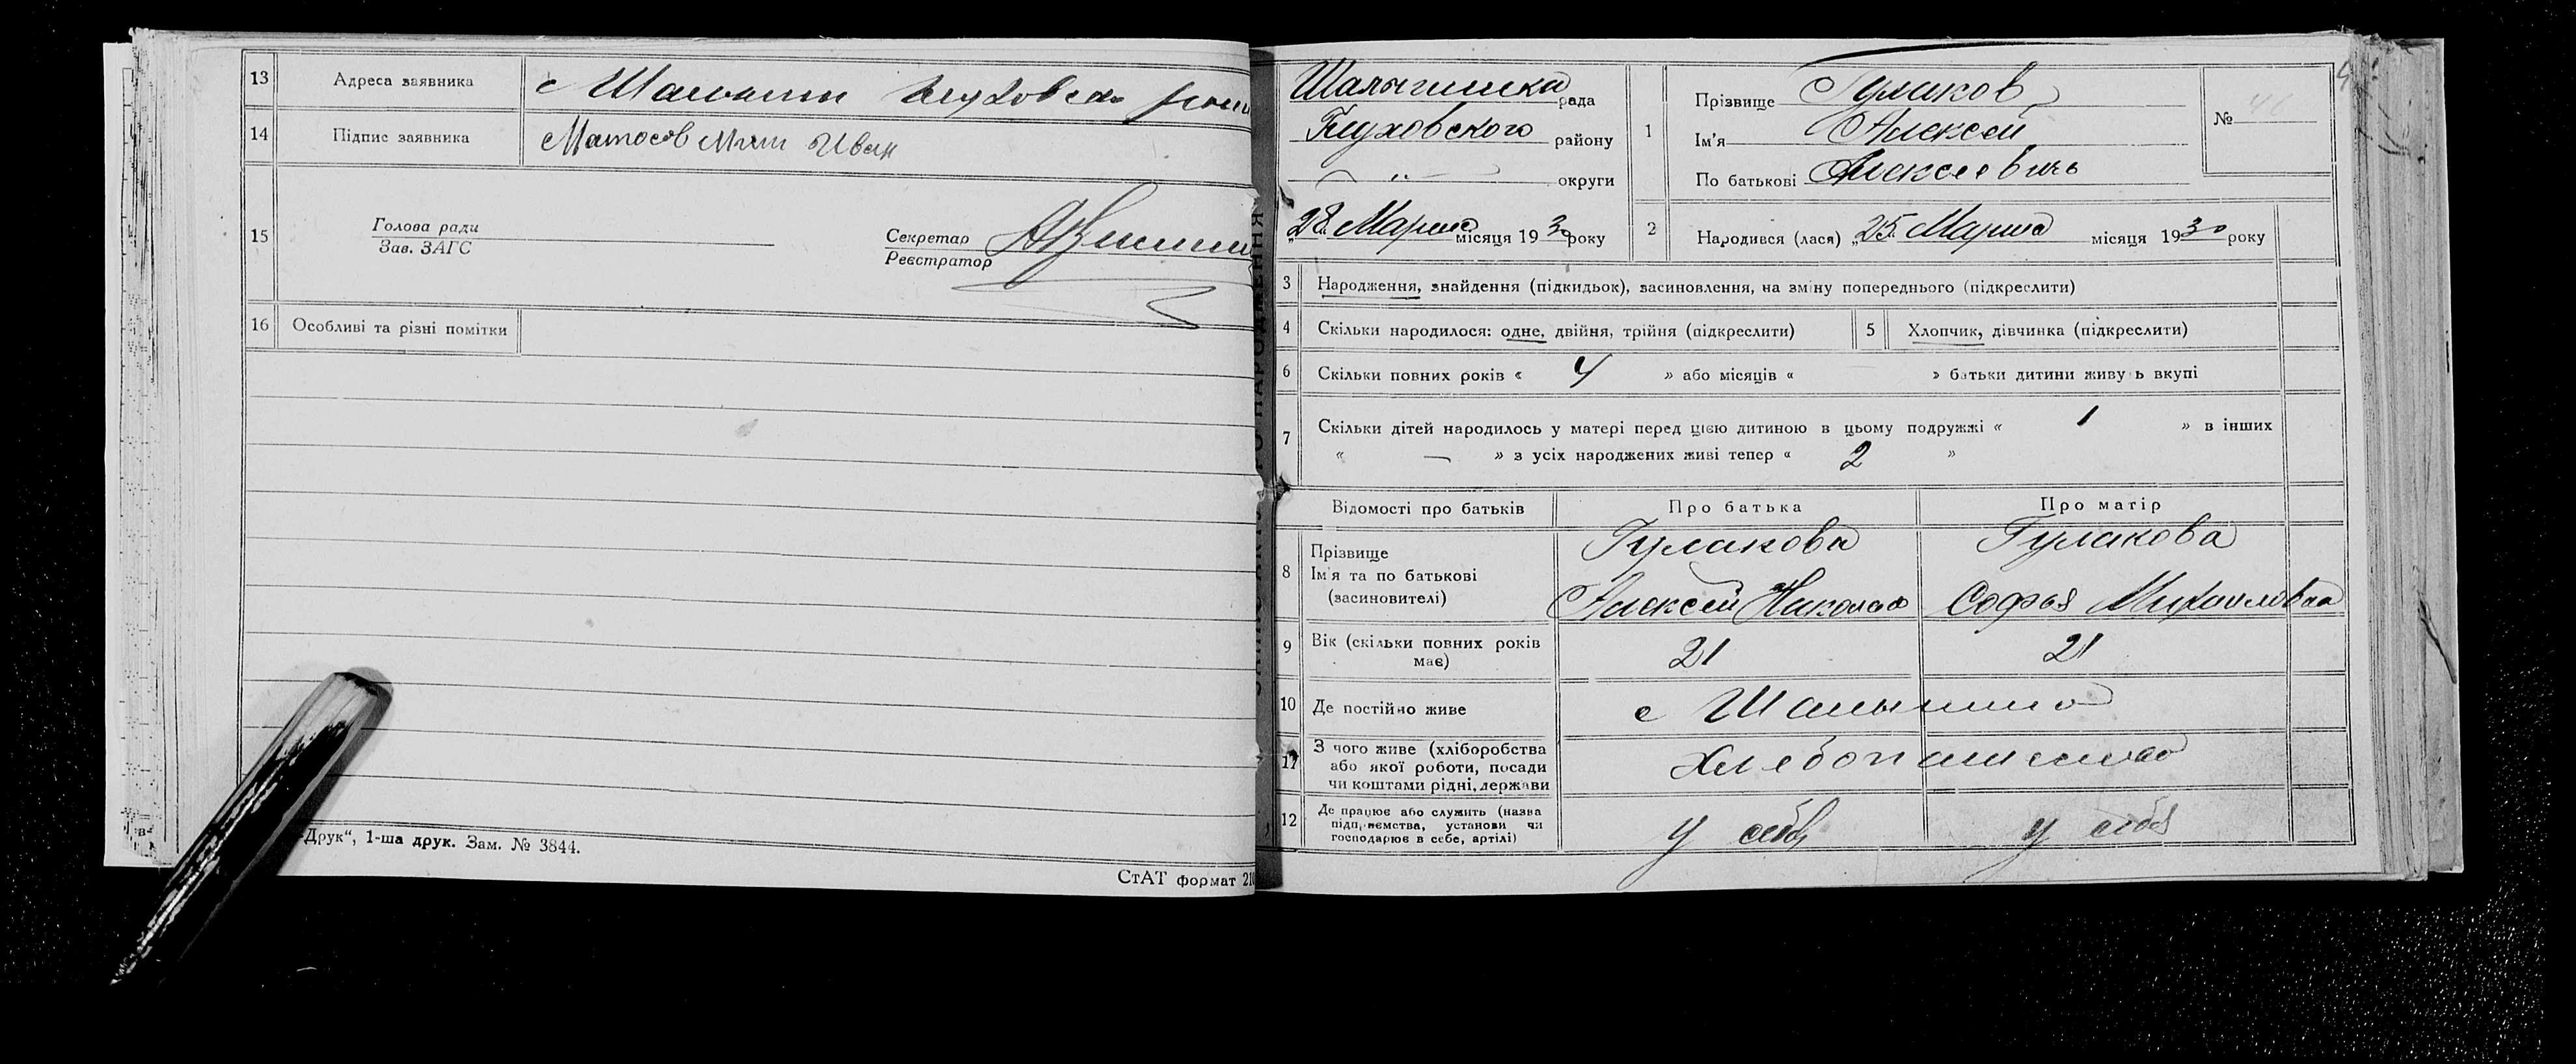 13 Адреса заявника с Шалыгин Глуховско
14 Підпис заявника Матосов Иван
15
Голова ради
Зав. ЗАГС
Секретар
Реєстратор
16 Особливі та різні помітки
Друк“, 1-ша друк. Зам. № 3844.
СтАТ формат 210
Шалыгинска рада
Глуховского району
— " — округи
„28. Марта місяця 1930 року
1 Прізвище Гулаков
Ім’я Алексей
По батькові Алексеевичь
№
2 Народився (лася) „25. Марта місяця 1930 року
3 Народження, знайдення (підкидьок), засиновлення, на зміну попереднього (підкреслити)
4 Скільки народилося: одне, двійня, трійня (підкреслити) 5 Хлопчик, дівчинка (підкреслити)
6 Скільки повних років « 4 » або місяців « » батьки дитини живу ь вкупі
7 Скільки дітей народилось у матері перед цією дитиною в цьому подружжі « 1 » в інших
« — » з усіх народжених живі тепер « 2 »
Відомості про батьків Про батька Про матір
8 Прізвище Гулакова Гулакова
Ім’я та по батькові
(засиновителі) Алексей Николаев Софья Михаиловна
9 Вік (скільки повних років має) 21 21
10 Де постійно живе с Шалыгино
11 З чого живе (хліборобства
або якої роботи, посади
чи коштами рідні, держави
Хлебопашество
12 Де працює або служить (назва
підприємства, установи чи
господарює в себе, артілі)
у себя у себя